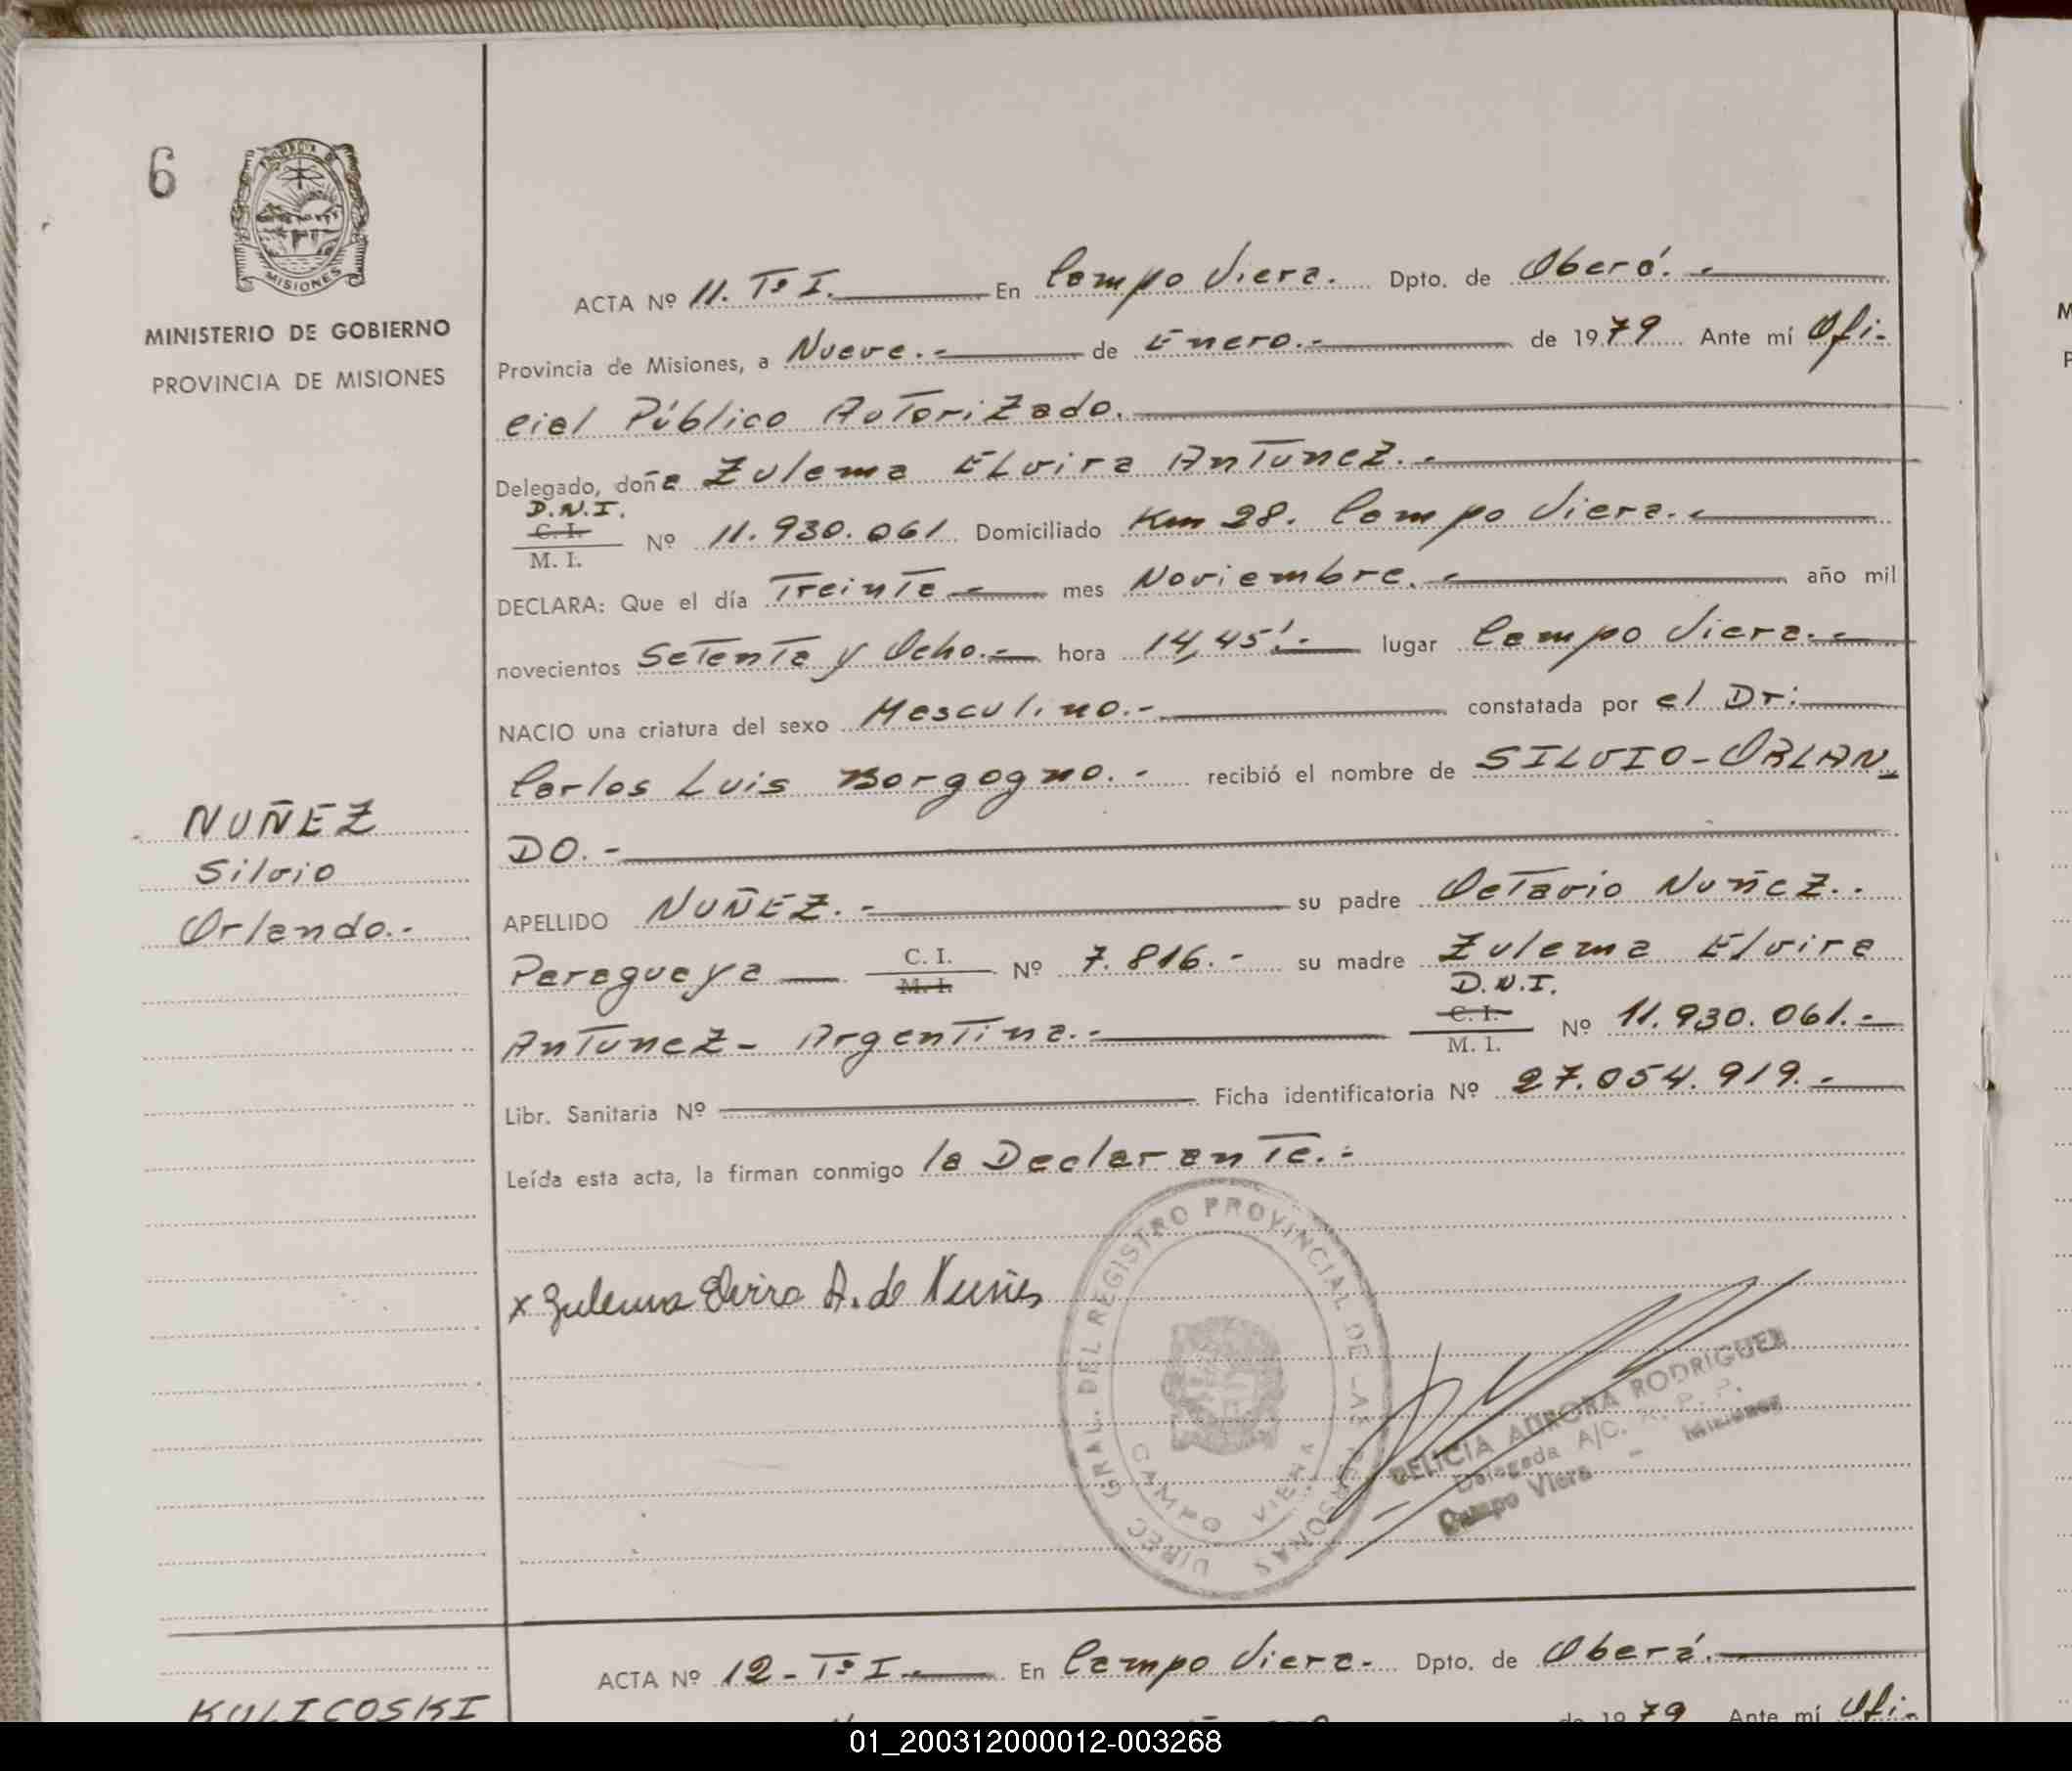 6
PROVINCIA DE
MISIONES
MINISTERIO DE GOBIERNO
PROVINCIA DE MISIONES
NUÑEZ
Silvio
Orlando.-
ACTA Nº 11. Tº I. En Campo Viera. Dpto. de Oberá.-
Provincia de Misiones, a Nueve.- de Enero.- de 1979 Ante mí Ofi-
cial Público Autorizado.
Delegado, doña Zulema Elvira Antunez.-
D.N.I.
C. I.
M. I. Nº 11.930.061 Domiciliado Km 28. Campo Viera.-
DECLARA: Que el día Treinta- mes Noviembre.- año mil
novecientos Setenta y Ocho.- hora 14,45'.- lugar Campo Viera.-
NACIO una criatura del sexo Masculino.- constatada por el Dr:
Carlos Luis Borgogno.- recibió el nombre de SILVIO-ORLAN-
DO.-
APELLIDO NUÑEZ.- su padre Octavio Nuñez.-
Paraguaya C. I.
M. I. Nº 7.816.- su madre Zulema Elvira
Antunez- Argentina.- D.N.I.
C. I.
M. I. Nº 11.930.061.-
Libr. Sanitaria Nº Ficha identificatoria Nº 27.054.919.-
Leída esta acta, la firman conmigo la Declarante.-
x Zulema Elvira A. de Nuñes
DIREC. GRAL. DEL REGISTRO PROVINCIAL DE LAS PERSONAS
CAMPO VIERA
DELICIA AURORA RODRIGUEZ
Delegada A/C. R. P. P.
Campo Viera - Misiones
ACTA Nº 12- Tº I.- En Campo Viera.- Dpto. de Oberá.
KULICOSKI
de 1979 Ante mí Ofi-
01_200312000012-003268